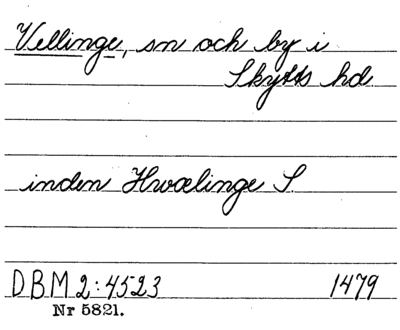 Vellinge, sn och by i
Skytts hd.
inden Hwælinge S.
DBM 2:4523 1479
Nr 5821.